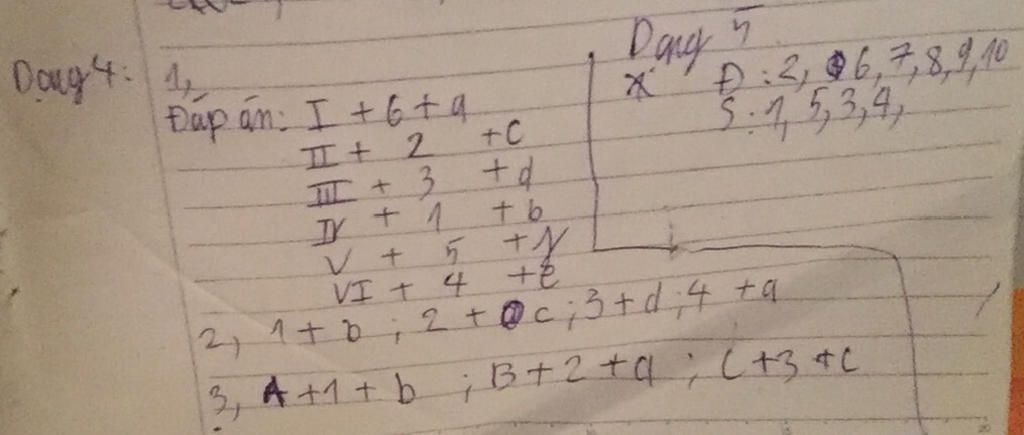 Dạng 4:
1,
Đáp án: I + 6 + a
II + 2 + c
III + 3 + d
IV + 1 + b
V + 5 +
VI + 4 + e
2, 1 + b ; 2 + c ; 3 + d ; 4 + a
3, A + 1 + b ; B + 2 + a ; C + 3 + c
Dạng 5
* Đ : 2, 6, 7, 8, 9, 10
S : 1, 5, 3, 4,